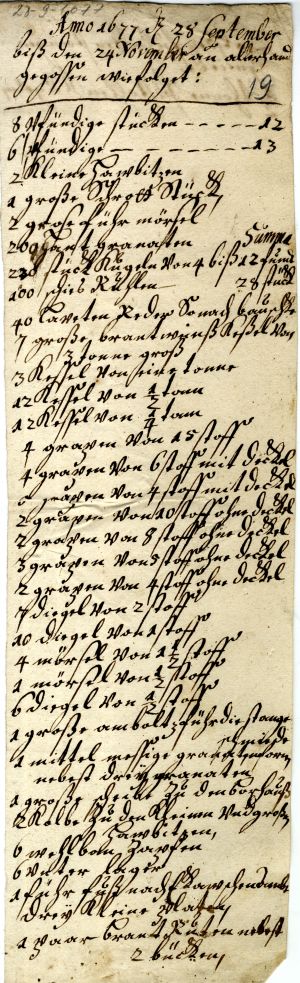 23-9-1677
Anno 1677 d 28 September
biß den 24 November an allerhand
gegoßen wie folget:
19
8 Pfündige stücken - - - - - 12
6 Pfündige - - - - - - 13
2 Kleine Hawbitzen
1 große Schrott Stück
2 große führ mörsel
200 Handt granaten Summa
230 stück Kugeln von 4 biß 12 pfund
100 28 stück
40 Laveten Reder
7 große brantweinß Keßel von
3 tonne groß
3 Keßel von eine tonne
12 Keßel von 1/2 tonn
12 Keßel von 1/4 tonn
4 grapen von 15 stoff
4 grapen von 6 stoff mit deckel
grapen von 4 stoff mit deckel
2 grapen von 10 stoff ohne deckel
2 grapen von 8 stoff ohne deckel
3 grapen von 5 stoff ohne deckel
2 grapen von 4 stoff ohne deckel
7 diegel von 2 stoff
10 diegel von 1 stoff
4 mörsel von 1 1/2 stoff
1 mörsel von 1/2 stoff
6 diegel von 1/2 stoff
1 große amboltz für die stangen
schmiede
1 mittel meßige granaten
nebest drey granaten
1 große scheibe zu dem borhauß
2 Kolbe zu den Kleinen und großen
Hawbitzen,
6 wellbom Zapfen
6 unter Lager
1 führ fuß nach
drey Kleine Platen,
1 paar brant Ruten nebest
2 bücken,